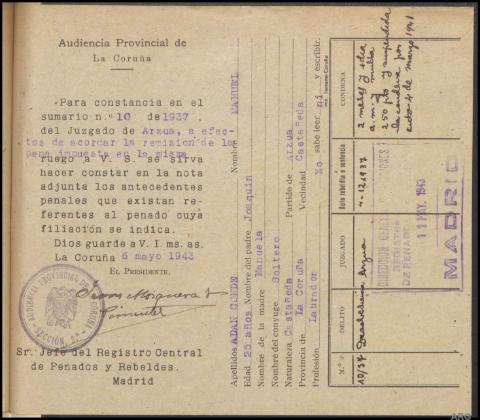 Audiencia Provincial de
La Coruña
Para constancia en el
sumario n.º 10 de 1937
del Juzgado de Arzua, a efec-
tos de acordar la remision de la
pena impuesta en la misma
ruego a V. S. se sirva
hacer constar en la nota
adjunta los antecedentes
penales que existan re-
ferentes al penado cuya
filiación se indica.
Dios guarde a V. I. ms. as.
La Coruña 6 mayo 1943
EL PRESIDENTE,
AUDIENCIA PROVINCIAL DE
SECCIÓN
Sr. Jefe del Registro Central
de Penados y Rebeldes.
Madrid
Apellidos ADAN CONDE Nombre MANUEL
Edad 25 años Nombre del padre Joaquin
Nombre de la madre Manuela
Nombre del conyuge Soltero
Naturaleza Castañeda Partido de Arzua
Provincia de La Coruña Vecindad Castañeda
Profesión Labrador No sabe leer ni escribir.
N.º DELITO JUZGADO Auto rebeldía o sentencia CONDENA
10/37 Arzua 4-12-1937 2 meses y 1 dia
a. m. y multa
250 pts y suspendida
la condena por
auto 4 de marzo 1941
REGISTRO
DE PENADOS
11 MAY. 1943
MADRID